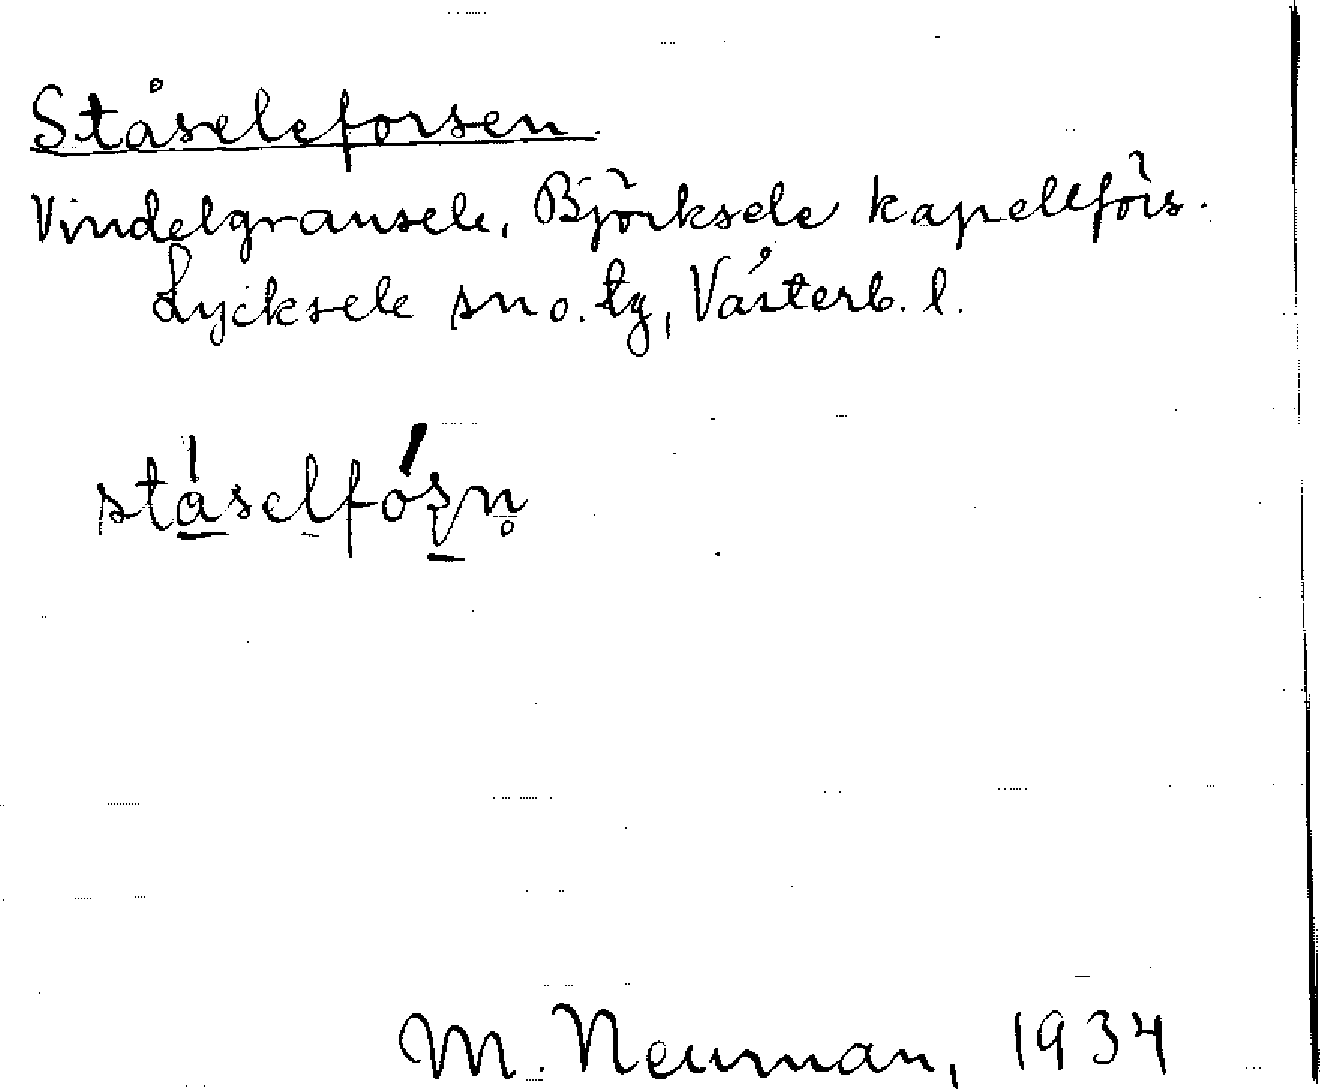 Ståseleforsen
Vindelgransele, Björksele kapellförs.
Lycksele sn o. tg, Västerb. l.
stáselfóşn̥
M. Neuman, 1934